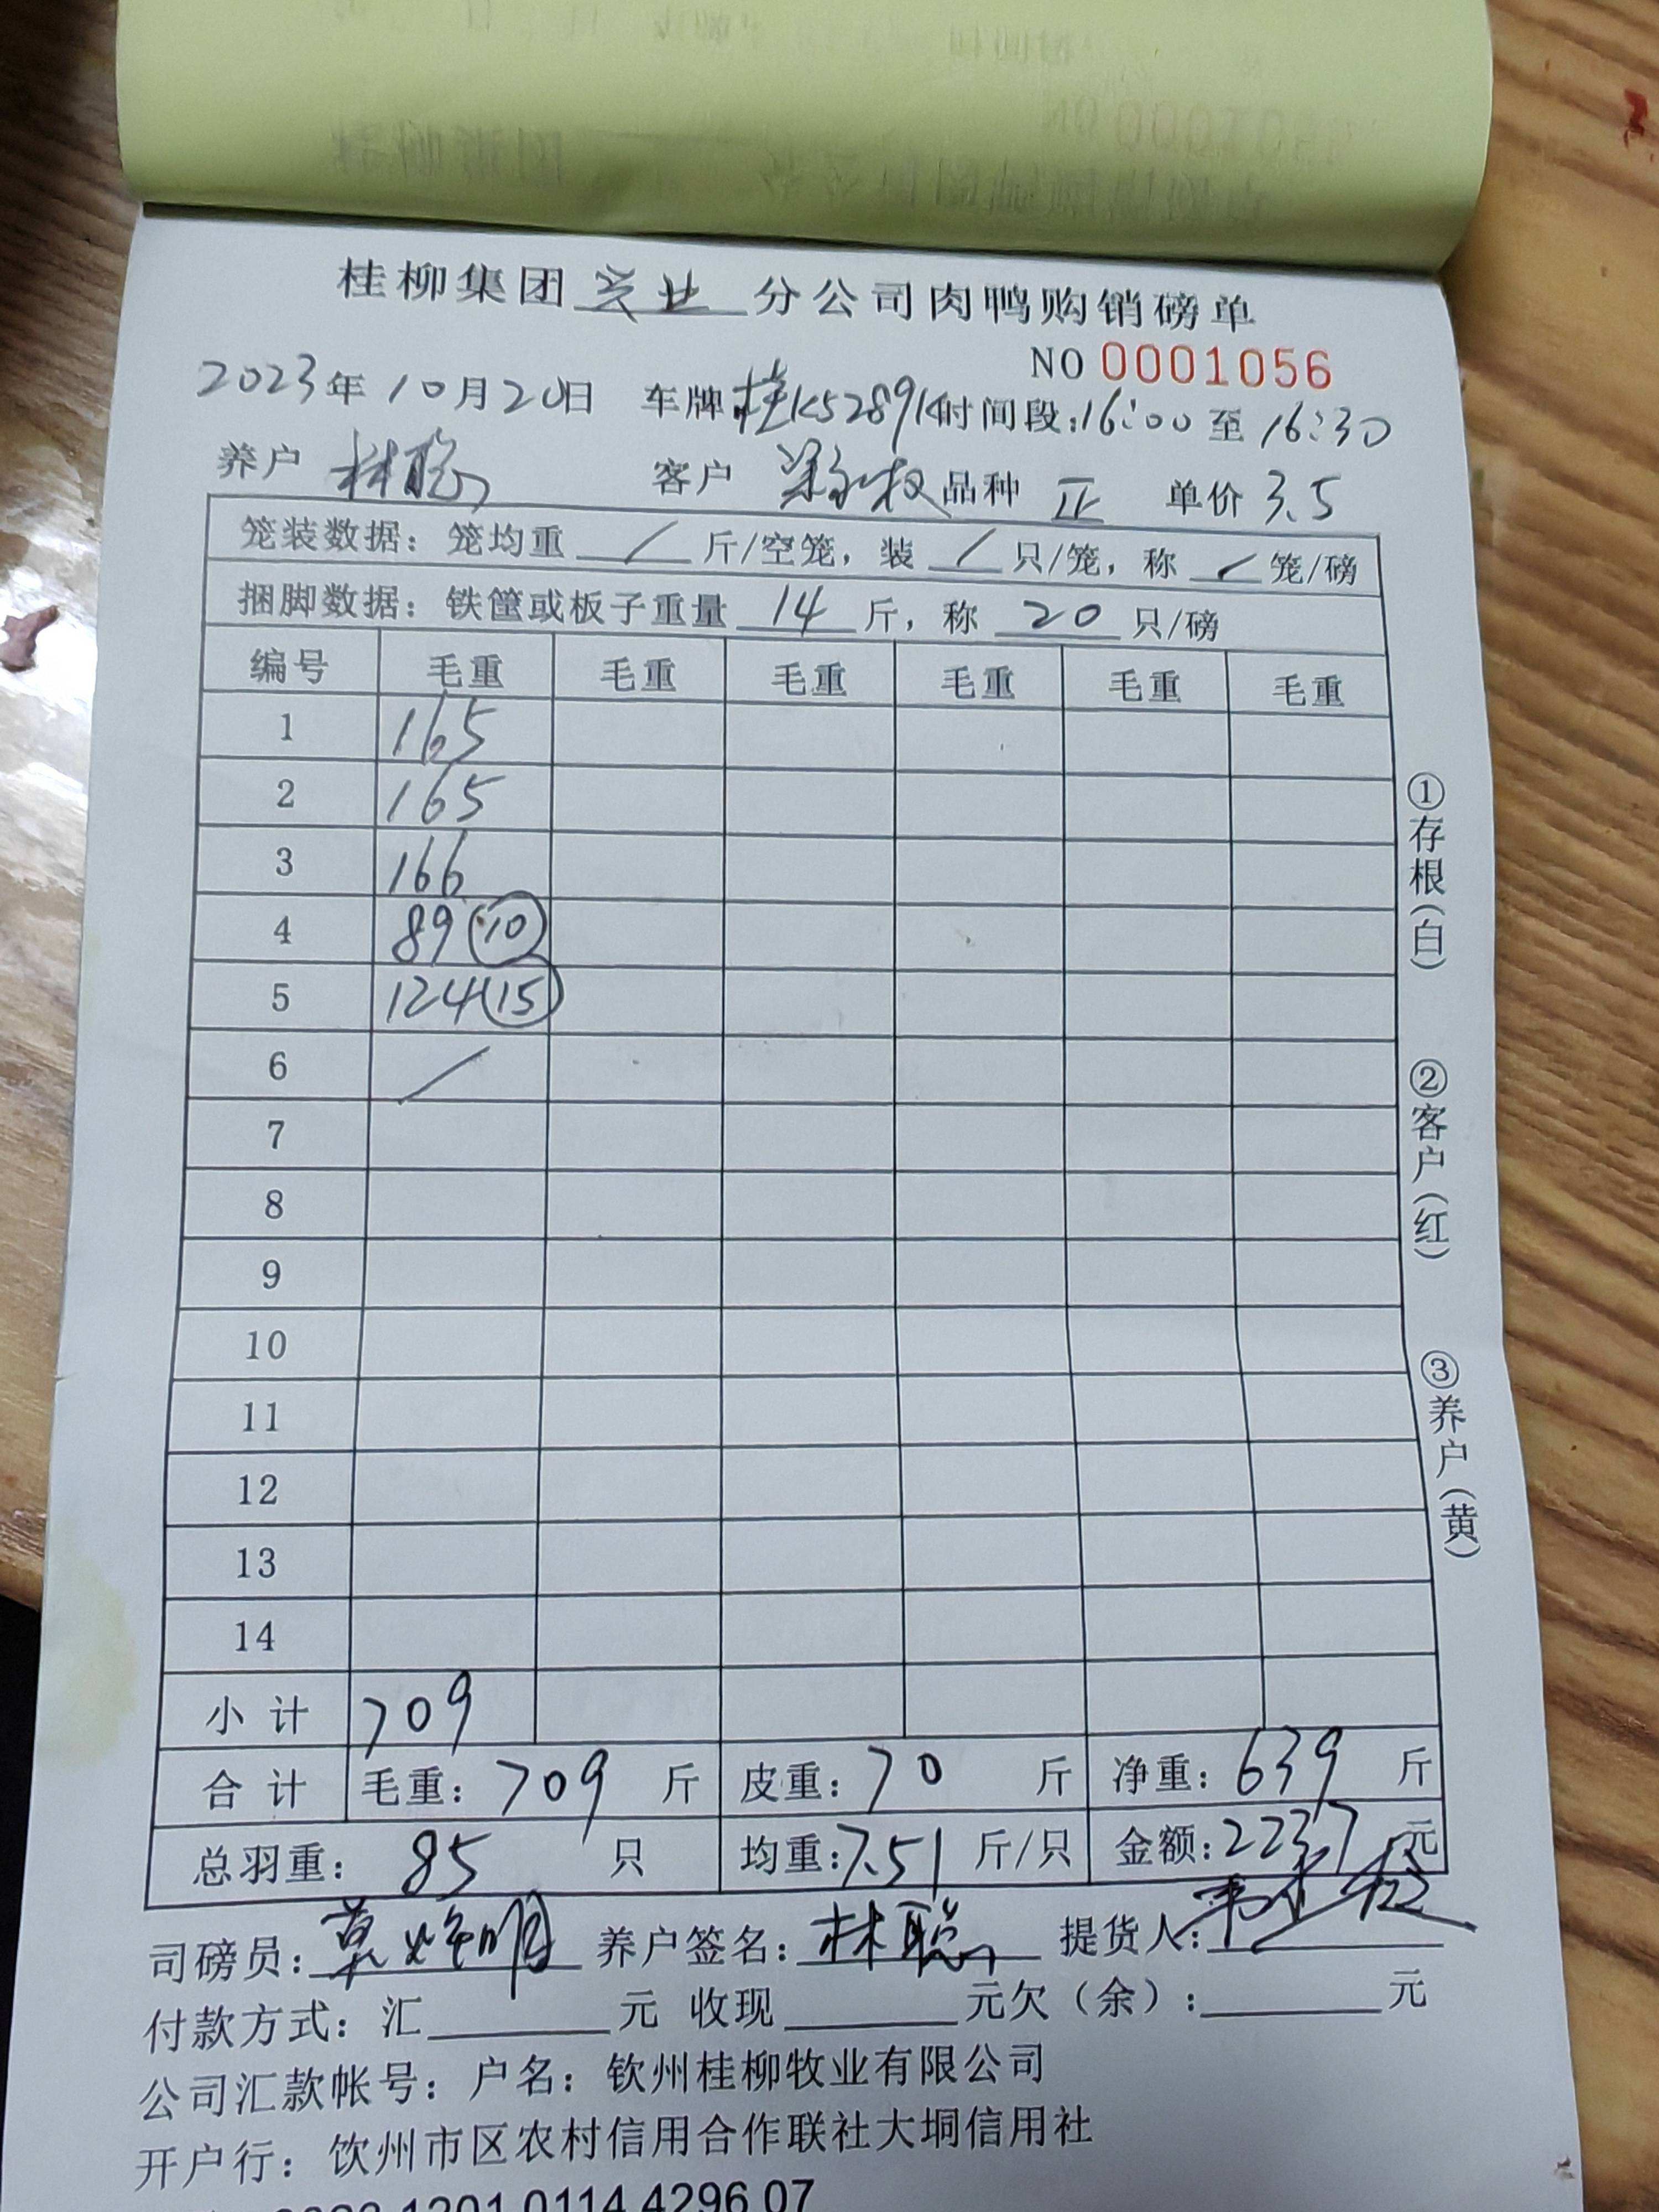 桂柳集团 兴业 分公司肉鸭购销磅单
NO 0001056
2023年10月20日 车牌:桂K5289K时间段:16:00至16:30
养户 林聪 客户 品种 正 单价 3.5
笼装数据：笼均重 / 斤/空笼，装 / 只/笼，称 / 笼/磅
捆脚数据：铁筐或板子重量 14 斤，称 20 只/磅
编号 毛重 毛重 毛重 毛重 毛重 毛重
1 165
2 165
3 166
4 89 (10)
5 124 (15)
6 /
7
8
9
10
11
12
13
14
小计 709
合计 毛重：709 斤 皮重：70 斤 净重：639 斤
总羽重：85 只 均重：7.51 斤/只 金额：2237 元
司磅员： 养户签名：林聪 提货人：
付款方式：汇 元 收现 元欠（余）： 元
公司汇款帐号：户名：钦州桂柳牧业有限公司
开户行：饮州市区农村信用合作联社大垌信用社
1201 0114 4296 07
①存根（白）
②客户（红）
③养户（黄）